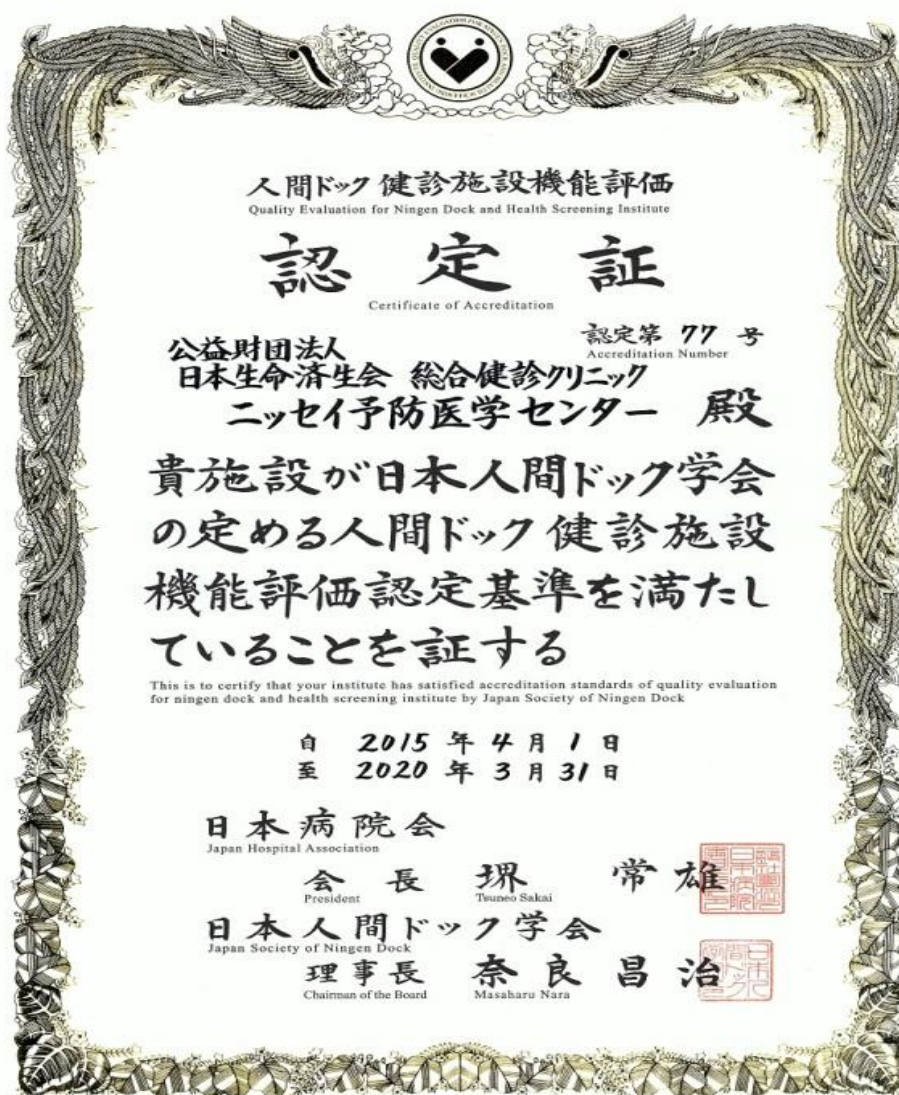 人間ドック健診施設機能評価
Quality Evaluation for Ningen Dock and Health Screening Institute
認定証
Certificate of Accreditation
認定第 77 号
Accreditation Number
公益財団法人
日本生命済生会 総合健診クリニック
ニッセイ予防医学センター 殿
貴施設が日本人間ドック学会
の定める人間ドック健診施設
機能評価認定基準を満たし
ていることを証する
This is to certify that your institute has satisfied accreditation standards of quality evaluation
for ningen dock and health screening institute by Japan Society of Ningen Dock
自 2015 年 4 月 1 日
至 2020 年 3 月 31 日
日本病院会
Japan Hospital Association
会長 堺 常雄
President Tsuneo Sakai
日本人間ドック学会
Japan Society of Ningen Dock
理事長 奈良昌治
Chairman of the Board Masaharu Nara